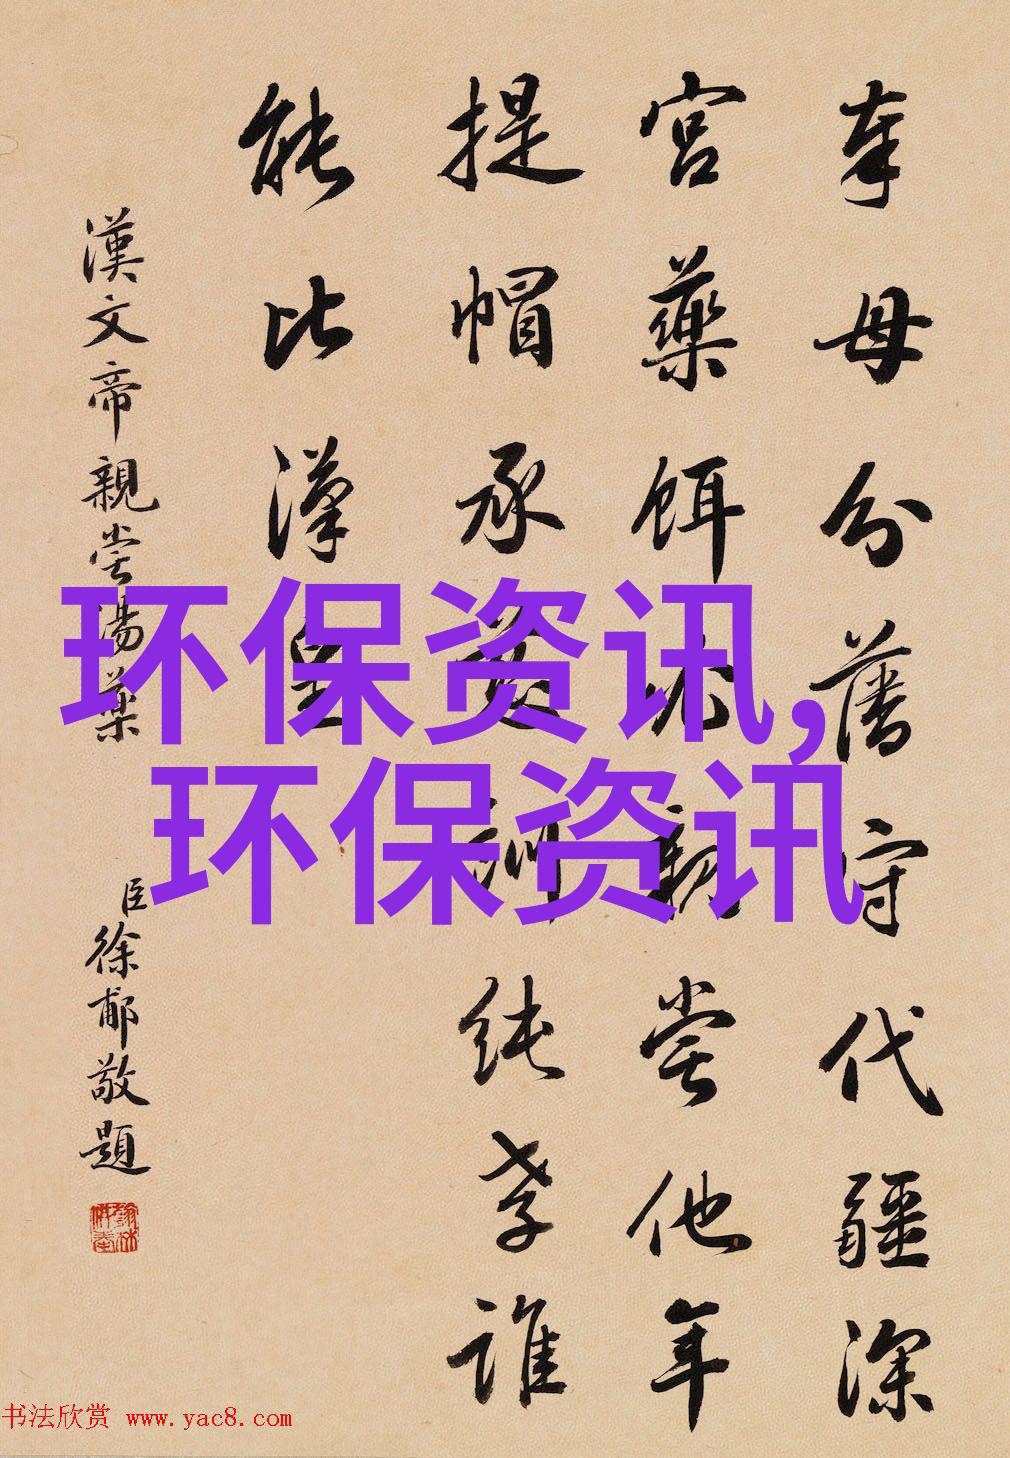 奉母分藩守代疆深
宮藥餌親嘗他年
提帽承慈訓純孝誰
能比漢皇
漢文帝親嘗湯藥
臣徐郙敬題
环保资讯,
环保资讯
书法欣赏 www.yac8.com